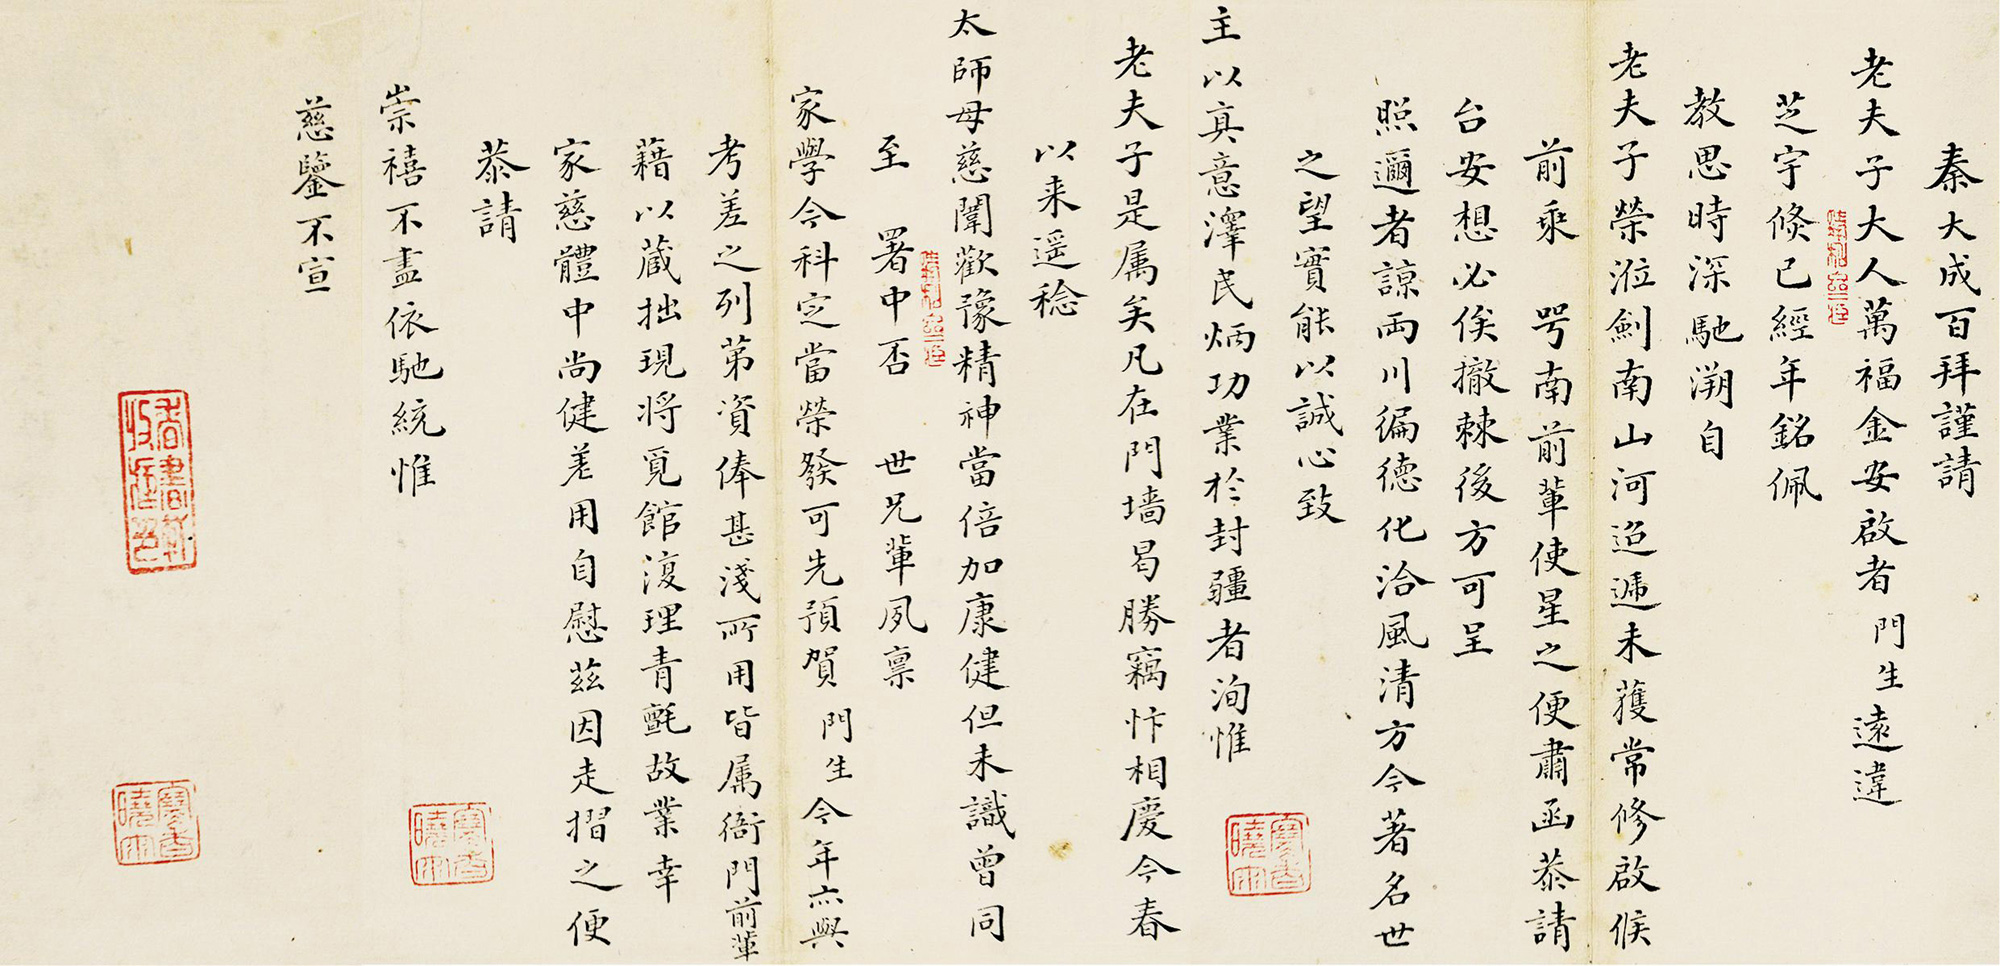 秦大成百拜謹請
老夫子大人萬福金安啟者門生遠違
芝宇倏已經年銘佩
教思時深馳溯自
老夫子榮涖劍南山河迢遞未獲常修啟候
前乘 咢南前輩使星之便肅函恭請
台安想必俟撤棘後方可呈
照邇者諒両川徧德化洽風清方今著名世
之望實能以誠心致
主以真意澤民炳功業於封疆者洵惟
老夫子是属矣凡在門墻曷勝竊忭相慶今春
以来遥稔
太師母慈闈歡豫精神當倍加康健但未識曾同
至 署中否 世兄輩夙禀
家學今科定當榮發可先預賀門生今年亦與
考差之列第資俸甚淺所用皆属衙門前輩
藉以藏拙現将覓館復理青氈故業幸
家慈體中尚健差用自慰茲因走摺之便
恭請
崇禧不盡依馳統惟
慈鑒不宣